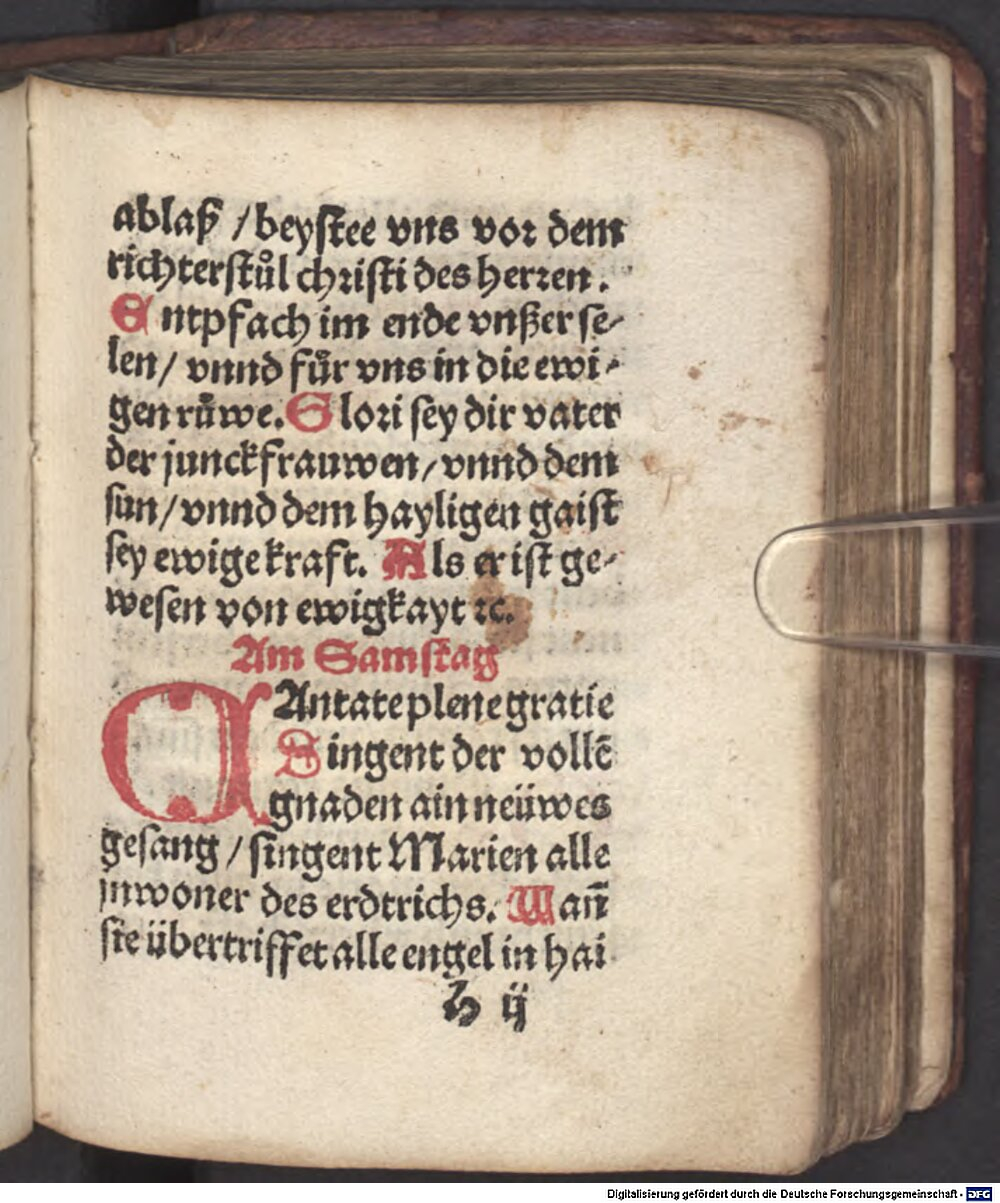 ablaß / beystee vns vor dem
richterstůl christi des herren.
Entpfach im ende vnßer se-
len / vnnd fůr vns in die ewi-
gen růwe. Glori sey dir vater
der junckfrauwen / vnnd dem
sun / vnnd dem hayligen gaist
sey ewige kraft. Als er ist ge-
wesen von ewigkayt ꝛc.
Am Samstag
CAntate plene gratie
Singent der vollē
gnaden ain neüwes
gesang / singent Marien alle
jnwoner des erdtrichs. Wañ
sie übertriffet alle engel in hai
h ij
Digitalisierung gefördert durch die Deutsche Forschungsgemeinschaft - DFG